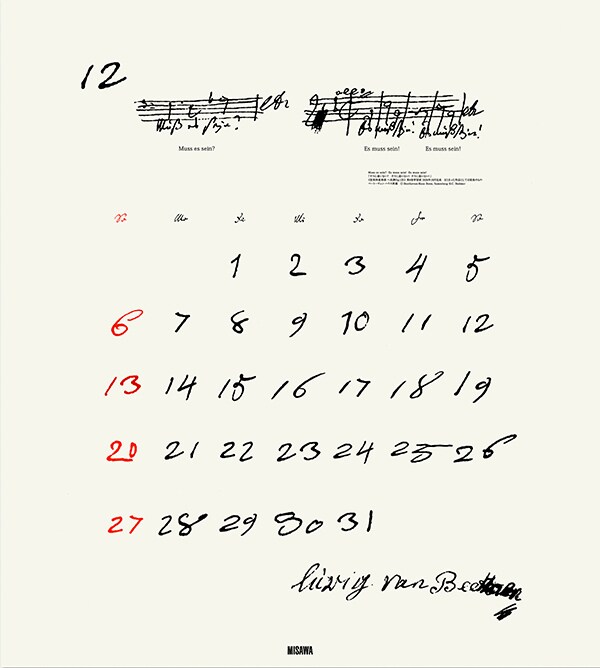 12
Muß es sein?
Es muß sein! Es muß sein!
Muss es sein? Es muss sein! Es muss sein!
Muss es sein? Es muss sein! Es muss sein!
1 2 3 4 5
6 7 8 9 10 11 12
13 14 15 16 17 18 19
20 21 22 23 24 25 26
27 28 29 30 31
ludwig van Beethoven
MISAWA